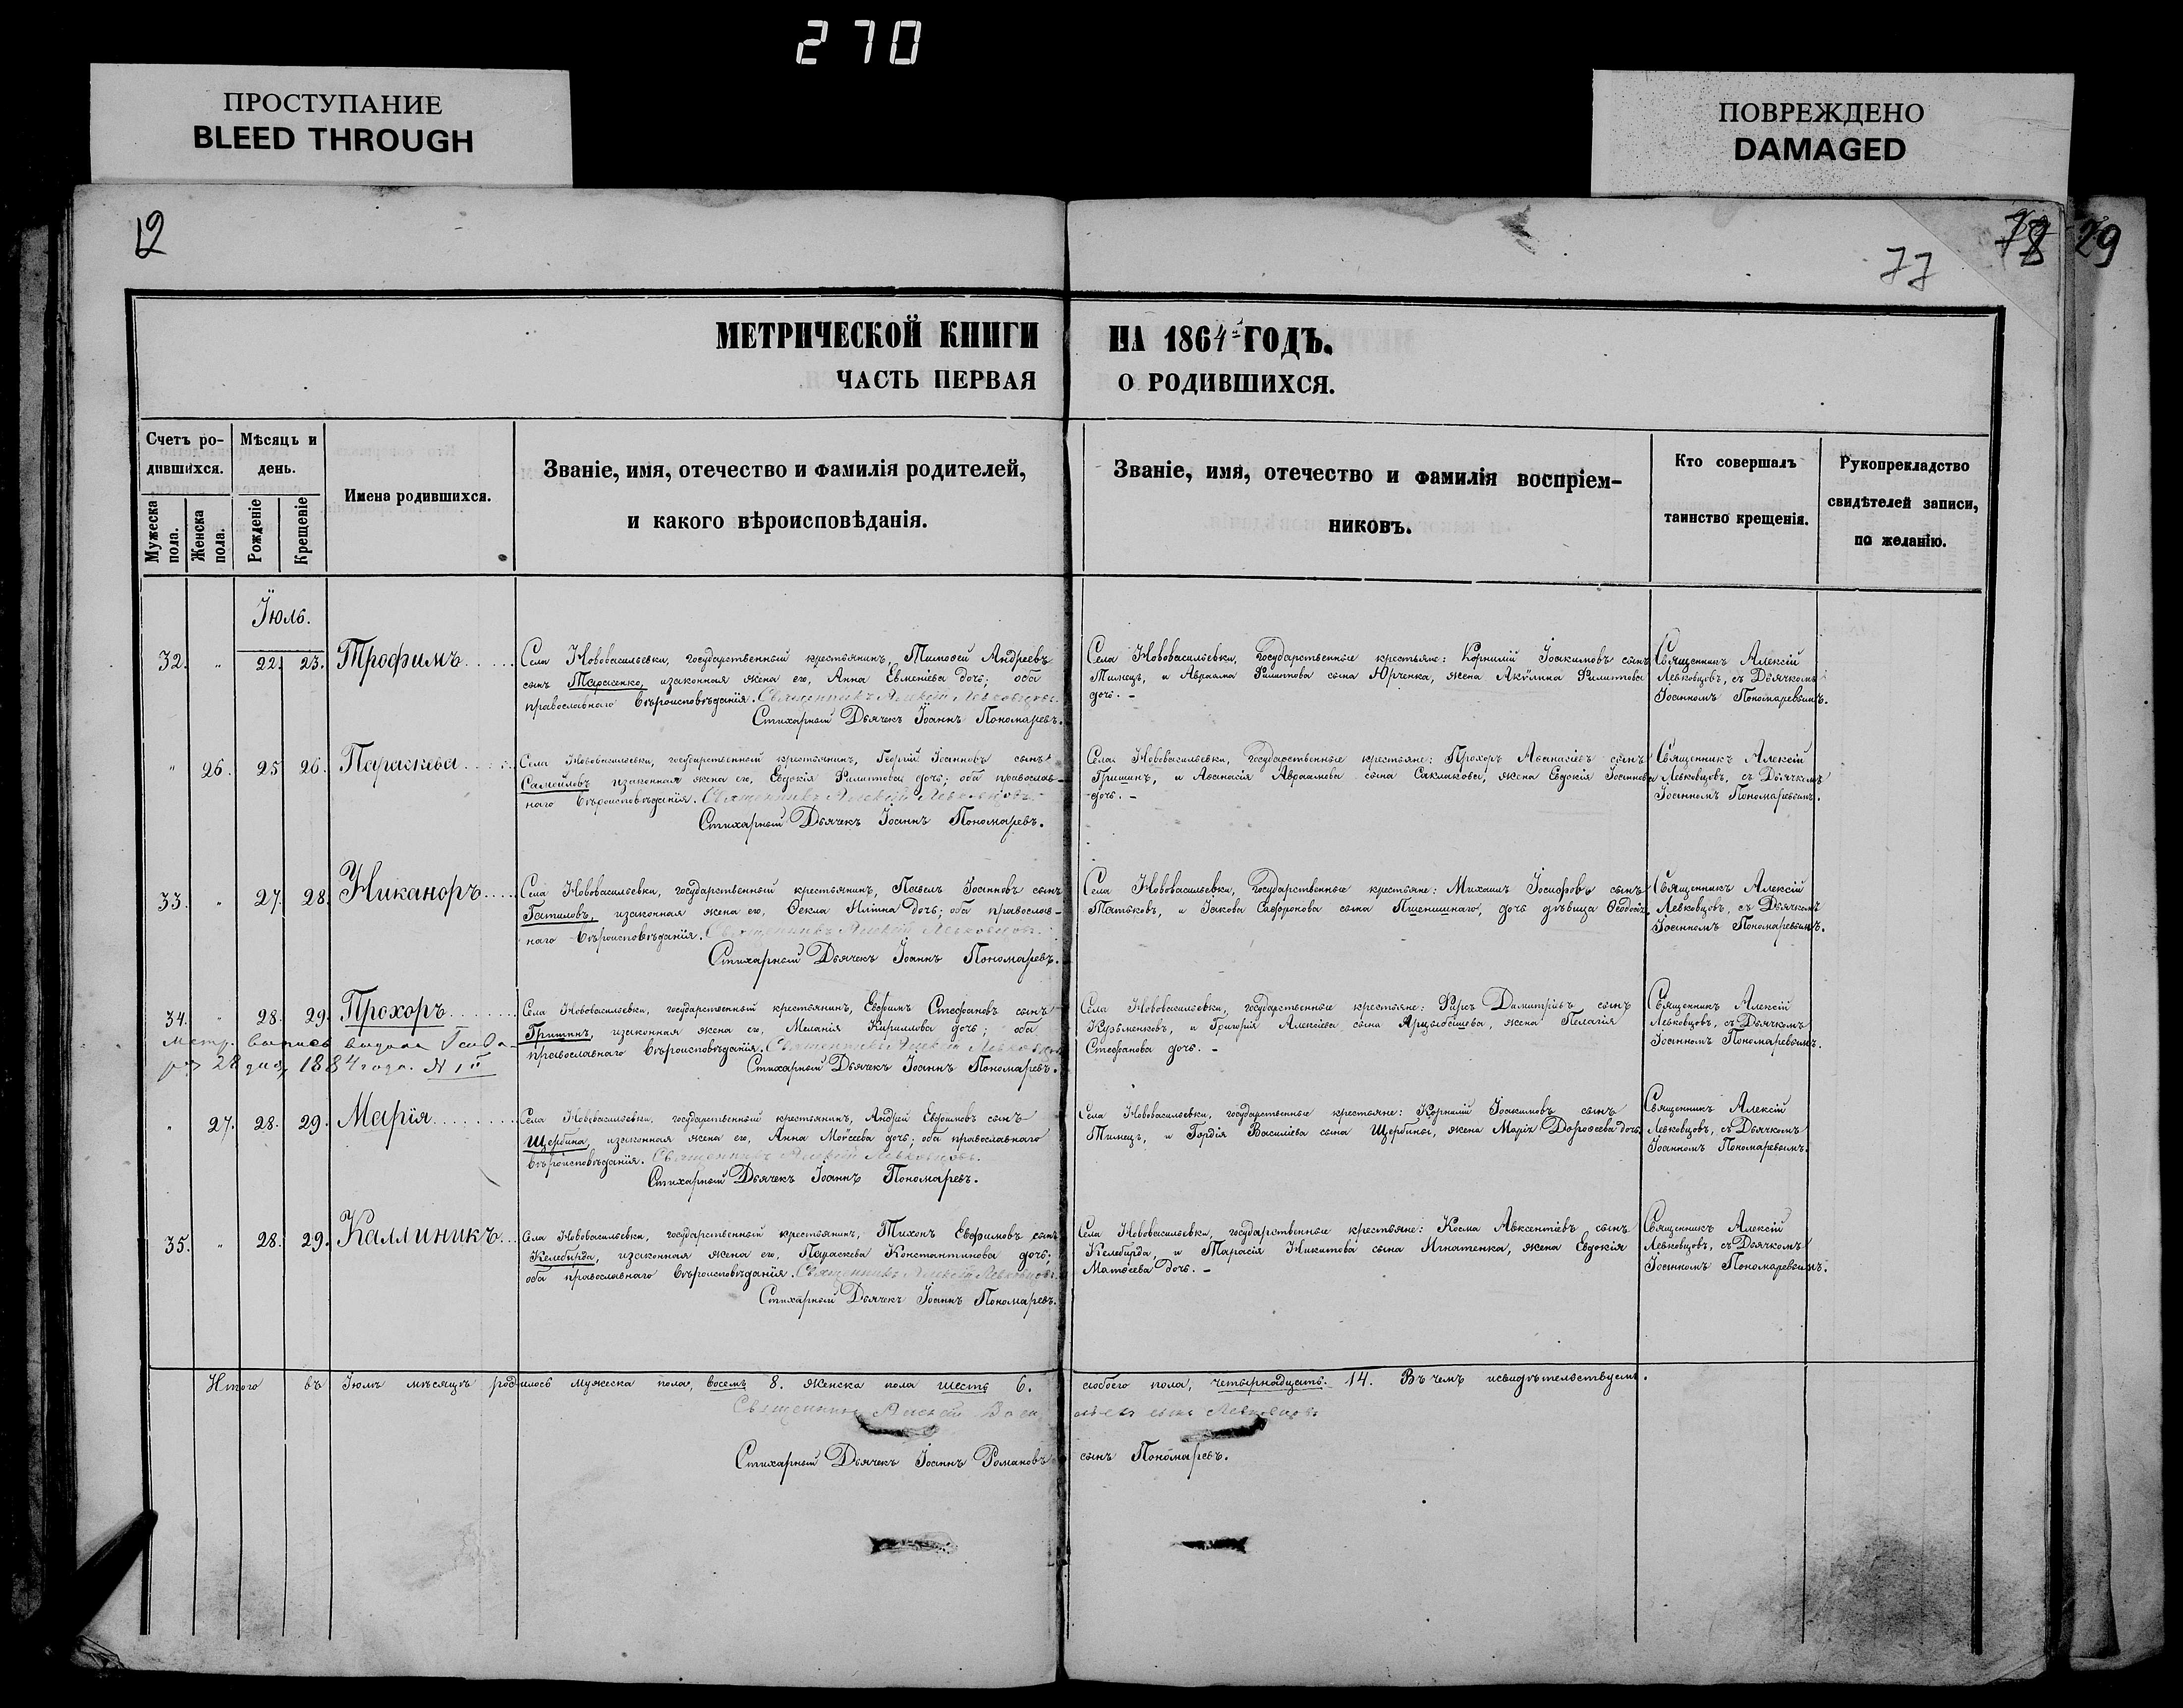 270
ПРОСТУПАНИЕ
BLEED THROUGH
ПОВРЕЖДЕНО
DAMAGED
12
77
78
29
МЕТРИЧЕСКОЙ КНИГИ НА 1864 ГОДЪ.
ЧАСТЬ ПЕРВАЯ О РОДИВШИХСЯ.
Счетъ ро-
дившихся.
Мужеска
пола.
Женска
пола.
Мѣсяцъ и
день.
Рожденіе
Крещеніе
Имена родившихся.
Званіе, имя, отечество и фамилія родителей,
и какого вѣроисповѣданія.
Званіе, имя, отечество и фамилія воспріем-
никовъ.
Кто совершалъ
таинство крещенія.
Рукоприкладство
свидѣтелей записи,
по желанію.
Іюль.
32. " 22. 23. Трофимъ
Села Нововасильевки, государственный крестьянинъ, Тимоѳей Андреевъ
сынъ Тарасенко, изаконная жена его, Анна Евменіева дочь; оба
православнаго вѣроисповѣданія. Священникъ Алексій Левковцовъ.
Стихарный Дьячекъ Іоаннъ Пономаревъ.
Села Нововасильевки, государственные крестьяне: Корнилій Іоакимовъ сынъ
Тимецъ, и Авраама Филиппова сына Юрченка, жена Акулина Филиппова
дочь. –
Священникъ Алексій
Левковцовъ, съ Дьячкомъ
Іоанномъ Пономаревымъ.
" 26. 25 26. Параскева
Села Нововасильевки, государственный крестьянинъ, Георгій Іоанновъ сынъ
Самойловъ изаконная жена его, Евдокія Филиппова дочь; оба православ-
наго вѣроисповѣданія. Священникъ Алексій Левковцовъ.
Стихарный Дьячекъ Іоаннъ Пономаревъ.
Села Нововасильевки, государственные крестьяне: Прохоръ Аѳанасіевъ сынъ
Гришинъ, и Аѳанасія Авраамова сына Саклакова, жена Евдокія Іоаннова
дочь. –
Священникъ Алексій
Левковцовъ, съ Дьячкомъ
Іоанномъ Пономаревымъ.
33. " 27. 28. Никаноръ
Села Нововасильевки, государственный крестьянинъ, Павелъ Іоанновъ сынъ
Гатиловъ, изаконная жена его, Ѳекла Иліина дочь; оба православ-
наго вѣроисповѣданія. Священникъ Алексій Левковцовъ.
Стихарный Дьячекъ Іоаннъ Пономаревъ.
Села Нововасильевки, государственные крестьяне: Михаилъ Іосифовъ сынъ
Татьковъ, и Іакова Сафронова сына Пшеничнаго, дочь дѣвица Ѳеодосія.
Священникъ Алексій
Левковцовъ, съ Дьячкомъ
Іоанномъ Пономаревымъ.
34. " 28. 29. Прохоръ
Метр. выпись выдана
28 1884 года. №
Села Нововасильевки, государственный крестьянинъ, Евфимъ Стефановъ сынъ
Гришинъ, изаконная жена его, Меланія Кириллова дочь; оба
православнаго вѣроисповѣданія. Священникъ Алексій Левковцовъ
Стихарный Дьячекъ Іоаннъ Пономаревъ.
Села Нововасильевки, государственные крестьяне: Фирсъ Димитріевъ сынъ
Кузьменковъ, и Григорія Алексіева сына Арцыбишева, жена Пелагія
Стефанова дочь. –
Священникъ Алексій
Левковцовъ, съ Дьячкомъ
Іоанномъ Пономаревымъ.
" 27. 28. 29. Марія
Села Нововасильевки, государственный крестьянинъ, Андрей Евфимовъ сынъ
Щербина, изаконная жена его, Анна Мойсеева дочь; оба православнаго
вѣроисповѣданія. Священникъ Алексій Левковцовъ.
Стихарный Дьячекъ Іоаннъ Пономаревъ.
Села Нововасильевки, государственные крестьяне: Корнилій Іоакимовъ сынъ
Тимецъ, и Гордія Василіева сына Щербины, жена Марія Дороѳеева дочь.
Священникъ Алексій
Левковцовъ, съ Дьячкомъ
Іоанномъ Пономаревымъ.
35. " 28. 29. Каллиникъ
Села Нововасильевки, государственный крестьянинъ, Тихонъ Евфимовъ сынъ
Келеберда, изаконная жена его, Параскева Константинова дочь;
оба православнаго вѣроисповѣданія. Священникъ Алексій Левковцовъ.
Стихарный Дьячекъ Іоаннъ Пономаревъ.
Села Нововасильевки, государственные крестьяне: Косма Авксентіевъ сынъ
Келеберда, и Тарасія Никитова сына Игнатенка, жена Евдокія
Матѳеева дочь. –
Священникъ Алексій
Левковцовъ, съ Дьячкомъ
Іоанномъ Пономаревымъ.
Итого въ Іюлѣ мѣсяцѣ родилось мужеска пола, восемь 8. женска пола шесть 6. обоего пола, четырнадцать. 14. Въ чемъ исвидѣтельствуемъ.
Священникъ Алексій сынъ Левковцовъ
Стихарный Дьячекъ Іоаннъ Романовъ сынъ Пономаревъ.